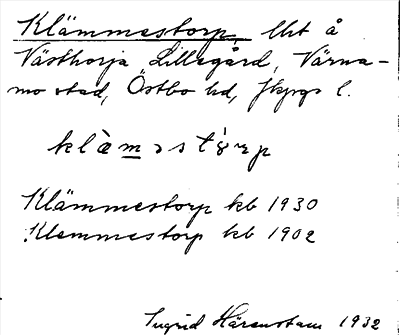 Klämmestorp, lht å
Västhorja Lillegård, Värna-
mo stad, Östbo hd, Jkpgs l.
klä̀mɔstórp
Klämmestorp kb 1930
Klemmestorp kb 1902
Ingrid Härenstam 1932